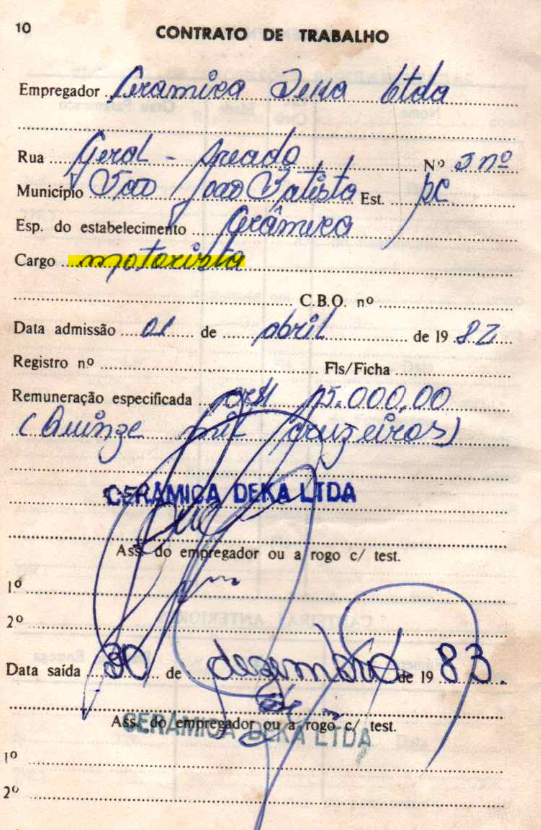 10
CONTRATO DE TRABALHO
Empregador Ceramica Deka Ltda
Rua Geral - Areado Nº S nº
Município São João Batista Est. SC
Esp. do estabelecimento Cerâmica
Cargo motorista
C.B.O. nº
Data admissão 01 de abril de 1982
Registro nº Fls/Ficha
Remuneração especificada 15.000,00
(Quinze mil cruzeiros)
CERAMICA DEKA LTDA
Ass. do empregador ou a rogo c/ test.
1º
2º
Data saída 30 de dezembro de 1983.
Ass. do empregador ou a rogo c/ test.
CERAMICA DEKA LTDA
1º
2º